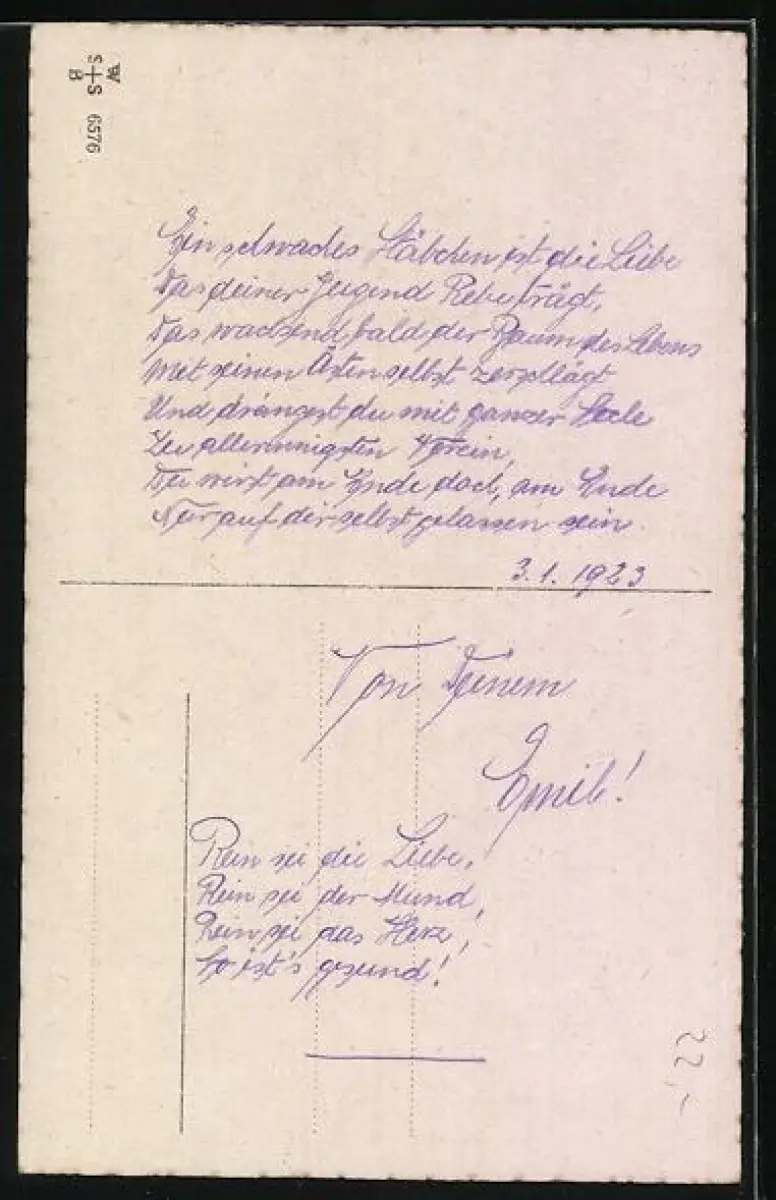 W
S+S 6576
B
Ein schwaches Stäbchen ist die Liebe
Das deiner Jugend Rebe trägt,
Das wachsend bald der Baum des Lebens
Mit seinen Ästen selbst zerschlägt
Und drängest du mit ganzer Seele
Zu allerinnigsten Verein,
Du wirst am Ende doch, am Ende
Nur auf dir selbst gelassen sein.
3.1.1923
Von Deinem
Emil!
Rein sei die Liebe,
Rein sei der Mund,
Rein sei das Herz,
So ist's gesund!
22,-